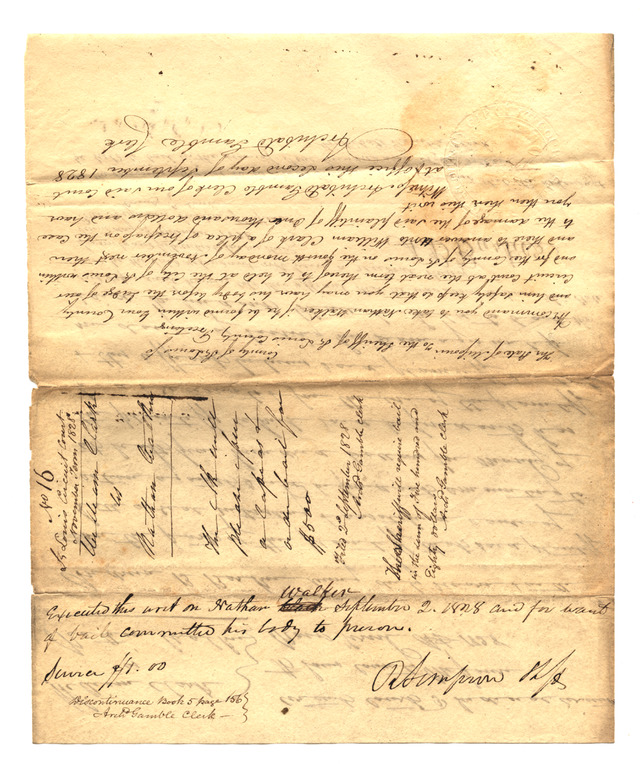 The State of Missouri
County of St Louis
To the Sheriff of St Louis County Greeting
We command you to take Nathan Walker if he be found within your County
and him safely keep so that you may have his body before the Judge of our
circuit Court at the next term thereof to be held at the City of St Louis within
and for the County of St Louis on the fourth monday of November next then
and there to answer unto William Clark of a plea of trespass on the case
to the damage of the said plaintiff of One thousand dollars and have
you then there this writ
Archibald Gamble Clerk of our said Court
at office this second day of September 1828
Archibald Gamble Clerk
No 16
St Louis Circuit Court
November Term 1828.
William Clark
vs
Nathan
The Clerk will
please issue
a capias &
order bail for
$500
Filed 2d September 1828
Archd Gamble Clerk
The Sheriff will require bail
in the sum of Five hundred and
Eighty dollars
Archd Gamble Clerk
Walker
Executed this writ on Nathan September 2. 1828 and for want
of bail committed his body to prison.
Service $1.00
R Simpson Shff
Discontinuance Book 5 page 156
Archd Gamble Clerk